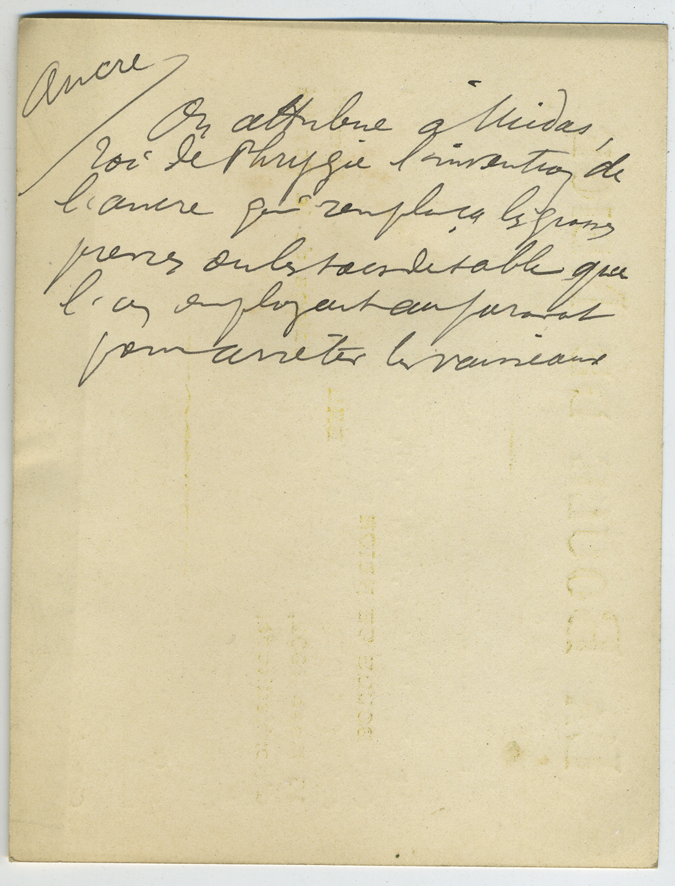 Ancre
On attribue à Midas,
roi de Phrygie l'invention de
l'ancre qui remplaça les grosses
pierres ou les sacs de sable que
l'on employait auparavant
pour arrêter les vaisseaux